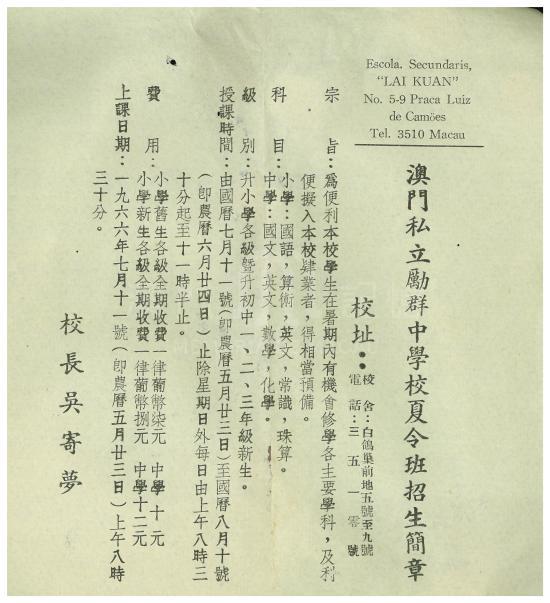 Escola. Secundaris,
"LAI KUAN"
No. 5-9 Praca Luiz
de Camöes
Tel. 3510 Macau
澳門私立勵群中學校夏令班招生簡章
校址：
校舍：白鴿巢前地五號至九號
電話：三五一零號
宗旨：爲便利本校學生在暑期內有機會修學各主要學科，及利
便擬入本校肄業者，得相當預備。
科目：小學：國語，算術，英文，常識，珠算。
中學：國文，英文，數學，化學。
級別：升小學各級暨升初中一、二、三年級新生。
授課時間：由國曆七月十一號（卽農曆五月廿三日）至國曆八月十號
（卽農曆六月廿四日）止除星期日外每日由上午八時三
十分起至十一時半止。
費用：小學舊生各級全期收費一律葡幣柒元　中學十元
小學新生各級全期收費一律葡幣捌元　中學十二元
上課日期：一九六六年七月十一號（卽農曆五月廿三日）上午八時
三十分。
校長吳寄夢